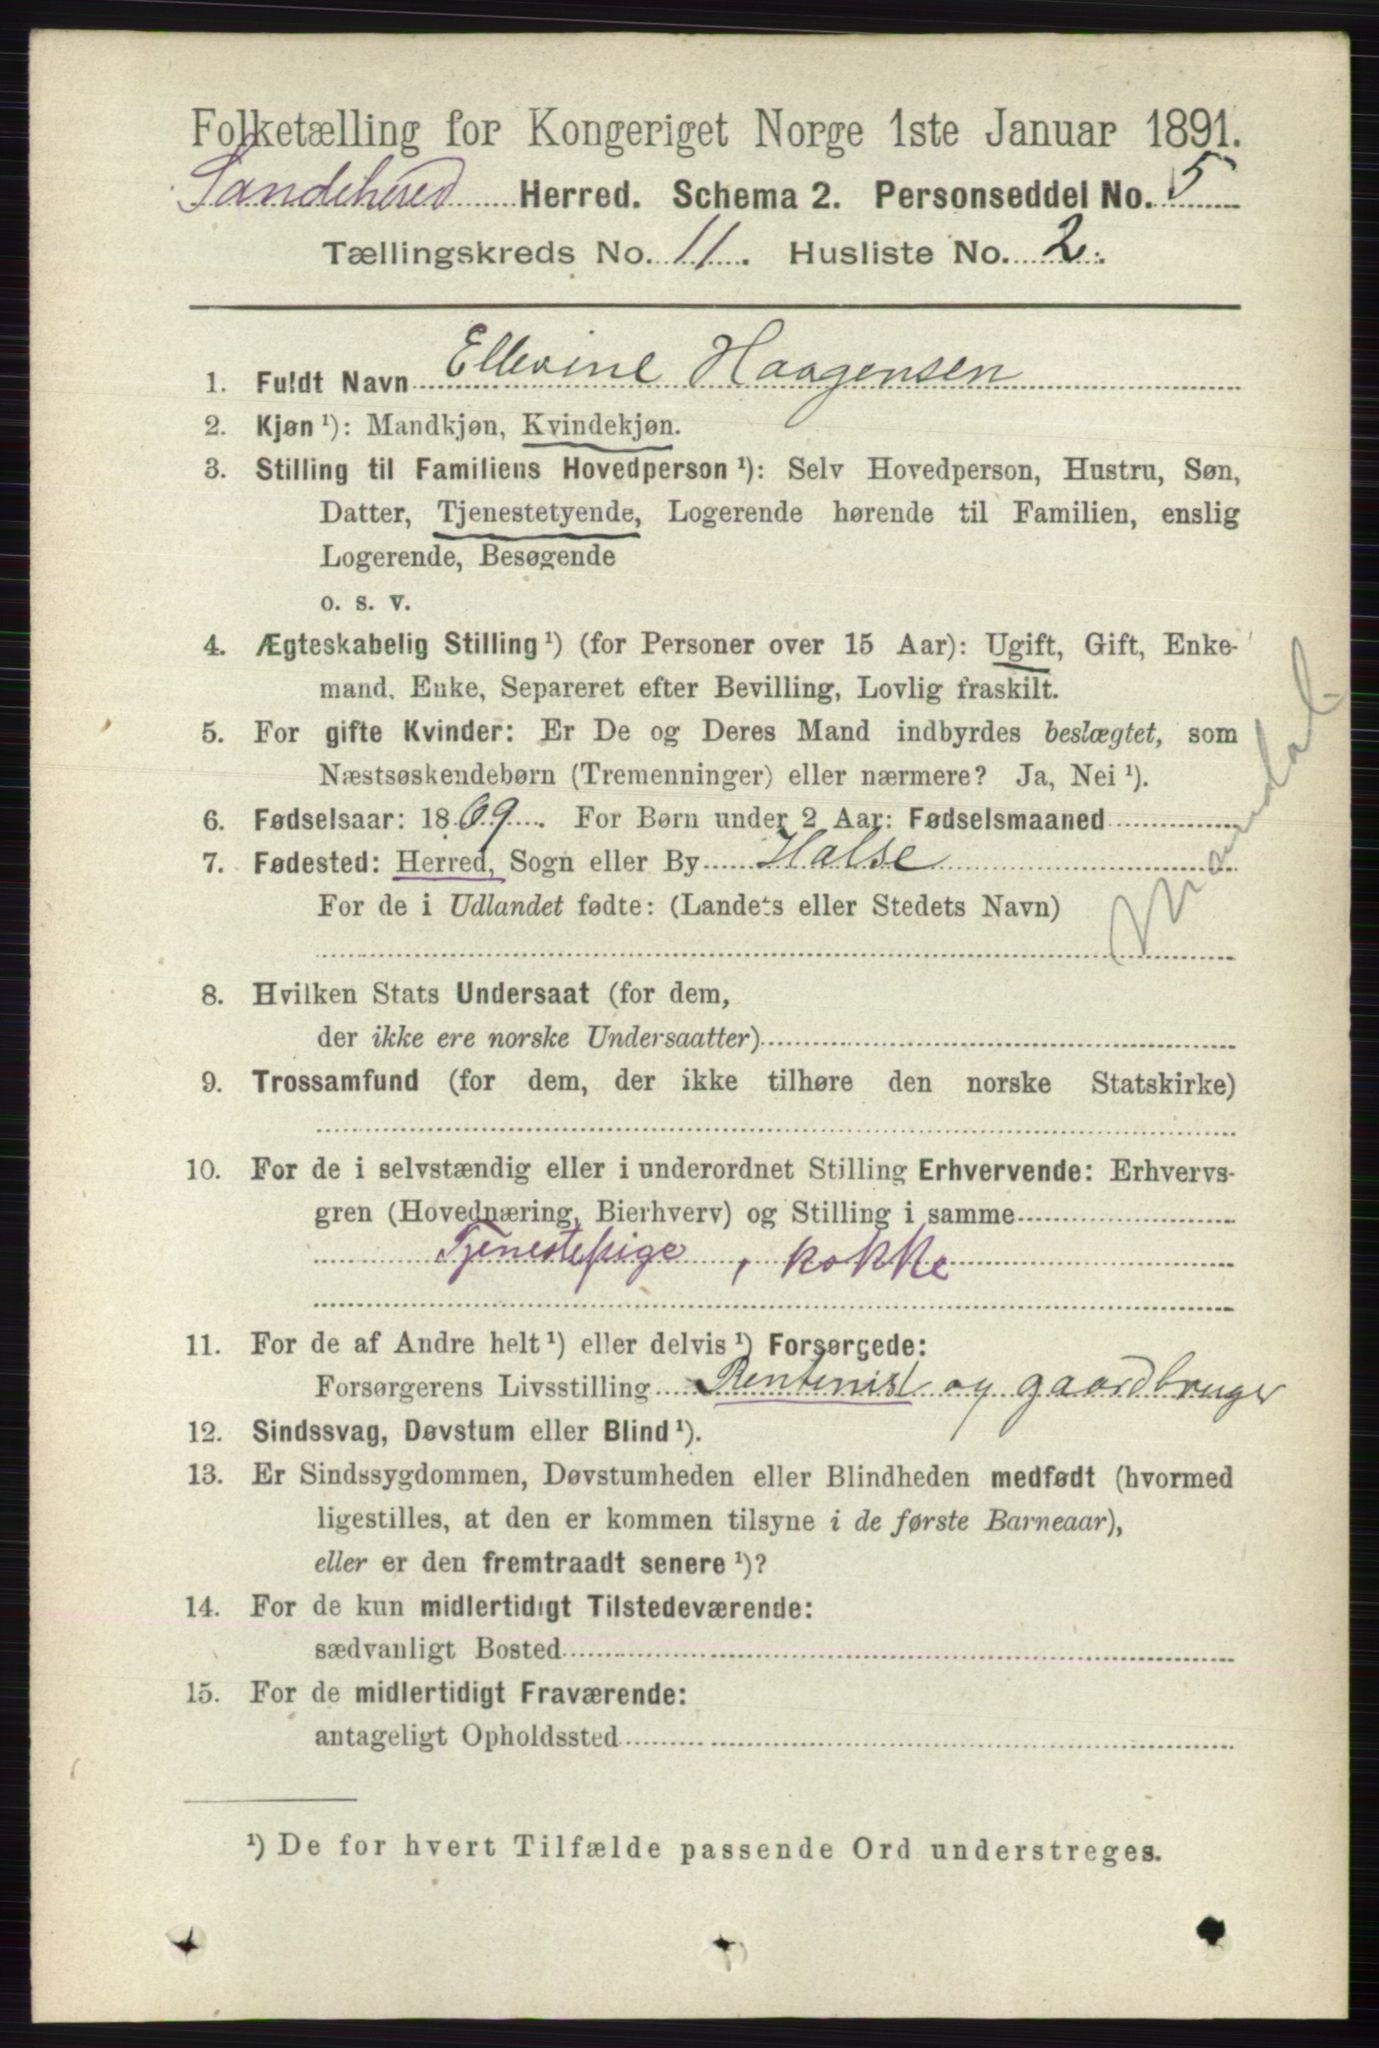 Folketælling for Kongeriget Norge 1ste Januar 1891.
Sandeherred Herred. Schema 2. Personseddel No. 5
Tællingskreds No. 11. Husliste No. 2.
1. Fuldt Navn Ellevine Haagensen
2. Kjøn ¹): Mandkjøn, Kvindekjøn.
3. Stilling til Familiens Hovedperson ¹): Selv Hovedperson, Hustru, Søn,
Datter, Tjenestetyende, Logerende hørende til Familien, enslig
Logerende, Besøgende
o. s. v.
4. Ægteskabelig Stilling ¹) (for Personer over 15 Aar): Ugift, Gift, Enke-
mand, Enke, Separeret efter Bevilling, Lovlig fraskilt.
5. For gifte Kvinder: Er De og Deres Mand indbyrdes beslægtet, som
Næstsøskendebørn (Tremenninger) eller nærmere? Ja, Nei ¹).
6. Fødselsaar: 1869. For Børn under 2 Aar: Fødselsmaaned
7. Fødested: Herred, Sogn eller By Halse
Mandal
For de i Udlandet fødte: (Landets eller Stedets Navn)
8. Hvilken Stats Undersaat (for dem,
der ikke ere norske Undersaatter)
9. Trossamfund (for dem, der ikke tilhøre den norske Statskirke)
10. For de i selvstændig eller i underordnet Stilling Erhvervende: Erhvervs-
gren (Hovednæring, Bierhverv) og Stilling i samme
Tjenestepige, kokke
11. For de af Andre helt ¹) eller delvis ¹) Forsørgede:
Forsørgerens Livsstilling Rentenist og gaardbruger
12. Sindssvag, Døvstum eller Blind ¹).
13. Er Sindssygdommen, Døvstumheden eller Blindheden medfødt (hvormed
ligestilles, at den er kommen tilsyne i de første Barneaar),
eller er den fremtraadt senere ¹)?
14. For de kun midlertidigt Tilstedeværende:
sædvanligt Bosted
15. For de midlertidigt Fraværende:
antageligt Opholdssted
¹) De for hvert Tilfælde passende Ord understreges.